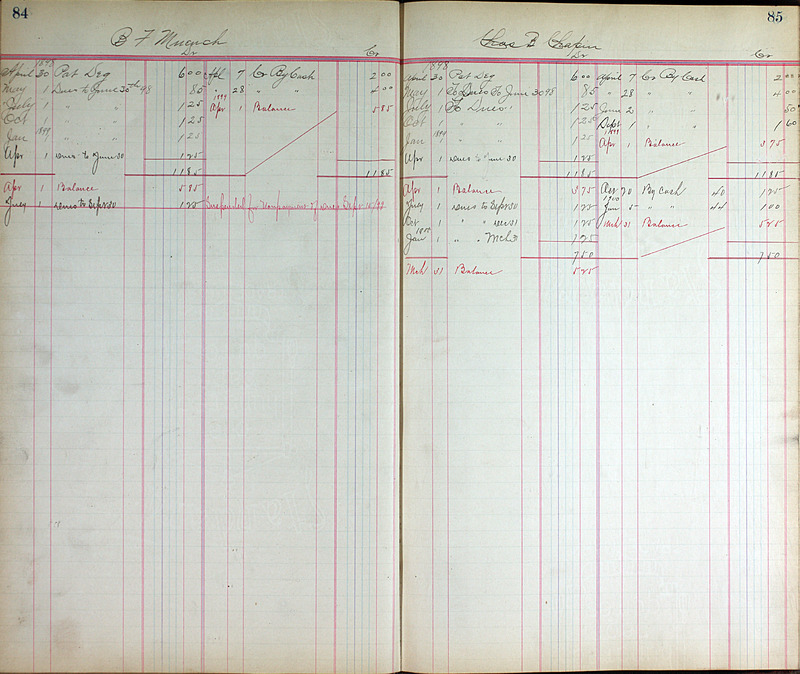 84
B F Muench
Dr Cr
1898
April 30 Pat Deg 6 00 Apl 7 Cr By Cash 2 00
May 1 Dues to June 30th 98 85 " 28 " " 4 00
July 1 " " 1 25 1899 Apr 1 Balance 5 85
Oct 1 " " 1 25
1899
Jan 1 " " 1 25
Apr 1 Dues to June 30 1 25
11 85 11 85
Apr 1 Balance 5 85
July 1 Dues to Sepr 30 1 25 Suspended for Nonpayment of Dues Sepr
85
Chas E
Dr Cr
1898
April 30 Pat Deg 6 00 April 7 Cr By Cash 2 00
May 1 To Dues To June 30 98 85 " 28 " " 4 00
July 1 To Dues 1 25 June 2 " " 50
Oct 1 " " 1 25 Sept 1 " " 1 60
1899
Jan 1 " " 1 25 1899 Apr 1 Balance 3 75
Apr 1 Dues to June 30 1 25
11 85 11 85
Apr 1 Balance 3 75 By Cash 1 25
July 1 Dues to Sepr 30 1 25 1900 Jan 5 " 1 00
Oct 1 " " Dec 31 1 25 Mch 31 Balance 5 25
Jan 1 " " Mch 31 1 25
7 50 7 50
Mch 31 Balance 5 25